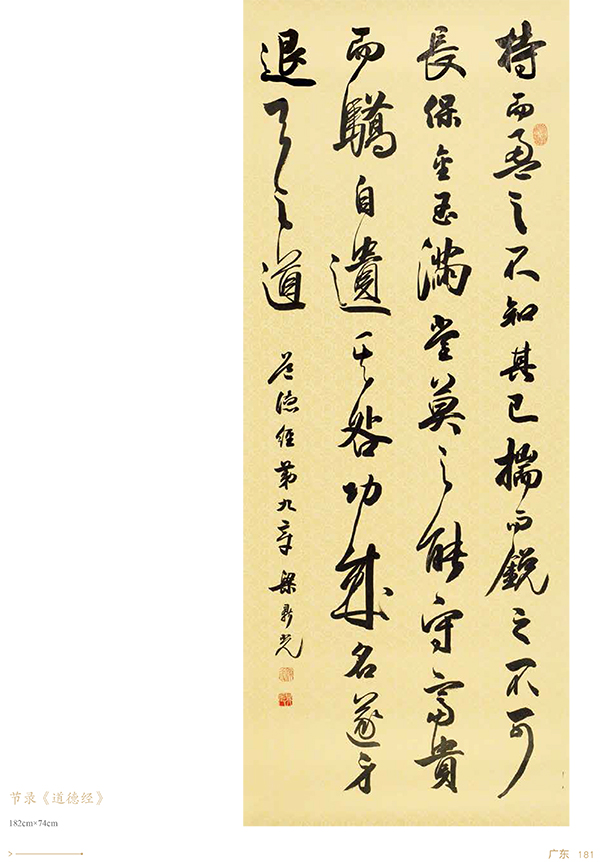 持而盈之不知其已揣而銳之不可
長保金玉滿堂莫之能守富貴
而驕自遺其咎功成名遂身
退天之道
道德經第九章 梁鼎光
节录《道德经》
182cm×74cm
广东 181